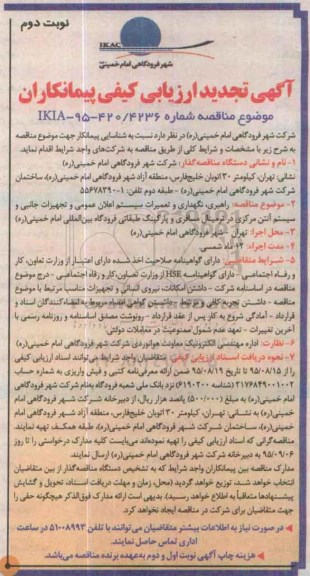 نوبت دوم
IKAC
شهر فرودگاهی امام خمینی
آگهی تجدید ارزیابی کیفی پیمانکاران
موضوع مناقصه شماره IKIA-۹۵-۴۲۰/۴۲۳۶
شرکت شهر فرودگاهی امام خمینی(ره) در نظر دارد نسبت به شناسایی پیمانکار جهت موضوع مناقصه
به شرح زیر با مشخصات و شرایط کلی از طریق مناقصه به شرکت‌های واجد شرایط اقدام نماید.
۱- نام و نشانی دستگاه مناقصه‌گذار: شرکت شهر فرودگاهی امام خمینی(ره)
نشانی: تهران، کیلومتر ۳۰ اتوبان خلیج‌فارس، منطقه آزاد شهر فرودگاهی امام خمینی(ره)، ساختمان
شرکت شهر فرودگاهی امام خمینی(ره) - طبقه دوم تلفن: ۱-۵۵۶۷۸۳۹۰
۲- موضوع مناقصه: راهبری، نگهداری و تعمیرات سیستم اعلان عمومی و تجهیزات جانبی و
سیستم آنتن مرکزی در ترمینال مسافری و پارکینگ طبقاتی فرودگاه بین‌المللی امام خمینی(ره)
۳- محل اجرا: تهران - شهر فرودگاهی امام خمینی (ره)
۴- مدت اجراء: ۱۲ ماه شمسی
۵- شرایط متقاضیان: دارای گواهینامه صلاحیت اخذ شده دارای اعتبار از وزارت تعاون، کار
و رفاه اجتماعی - دارای گواهینامه HSE از وزارت تعاون، کار و رفاه اجتماعی - درج موضوع
مناقصه در اساسنامه شرکت - داشتن امکانات، نیروی انسانی و تجهیزات مناسب مرتبط با موضوع
مناقصه - داشتن تجربه کافی و مرتبط - داشتن گواهی امضاء مربوط به امضاءکنندگان اسناد و
قرارداد - آمادگی شروع به کار پس از عقد قرارداد - رونوشت مصدق اساسنامه و روزنامه رسمی با
آخرین تغییرات - تعهد عدم شمول ممنوعیت در معاملات دولتی
۶- نظارت: اداره مهندسی الکترونیک معاونت هوانوردی شرکت شهر فرودگاهی امام خمینی(ره)
۷- نحوه دریافت اسناد ارزیابی کیفی: متقاضیان واجد شرایط می‌توانند اسناد ارزیابی کیفی
را از ۹۵/۰۸/۱۵ تا تاریخ ۹۵/۰۸/۱۹ ضمن ارائه معرفی‌نامه کتبی و فیش واریزی به شماره حساب
۲۱۷۶۸۴۹۰۰۱۰۰۲ (شناسه ۶۱۹۰۲۰۰) نزد بانک ملی شعبه فرودگاه به‌نام شرکت شهر فرودگاهی
امام خمینی(ره) به مبلغ (۵۰۰/۰۰۰) پانصد هزار ریال، از دبیرخانه شرکت شهر فرودگاهی امام
خمینی(ره) به نشانی: تهران، کیلومتر ۳۰ اتوبان خلیج‌فارس، منطقه آزاد شهر فرودگاهی امام
خمینی(ره)، ساختمان شرکت شهر فرودگاهی امام خمینی(ره)، طبقه همکف تهیه نمایند.
مناقصه‌گرانی که اسناد ارزیابی کیفی را تهیه نموده‌اند می‌بایست کلیه مدارک درخواستی را تا روز
۹۵/۰۹/۰۶ به دبیرخانه شرکت شهر فرودگاهی امام خمینی(ره) ارسال نمایند.
مدارک مناقصه بین پیمانکاران واجد شرایط که به تشخیص دستگاه مناقصه‌گذار از بین متقاضیان
انتخاب خواهند شد، توزیع خواهد گردید (محل، زمان و مهلت دریافت اسناد، تحویل و گشایش
پیشنهادها متعاقباً به اطلاع خواهد رسید). بدیهی است ارائه مدارک فوق‌الذکر هیچگونه حقی را
جهت متقاضیان برای شرکت در مناقصه ایجاد نخواهد کرد.
در صورت نیاز به اطلاعات بیشتر متقاضیان می‌توانند با تلفن ۵۱۰۰۸۹۹۳ در ساعت
اداری تماس حاصل نمایند.
هزینه چاپ آگهی نوبت اول و دوم به‌عهده برنده مناقصه می‌باشد.